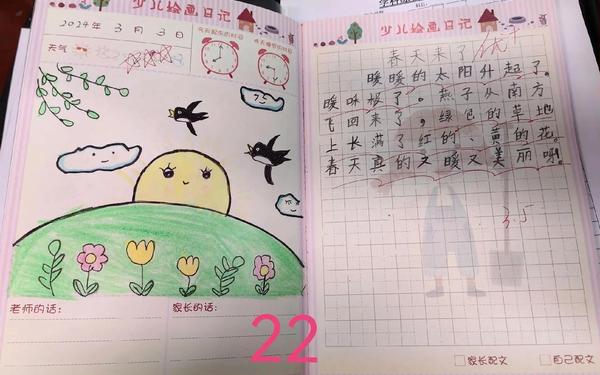 少儿绘画日记
2024年 3月 3日
天气
老师的话:
家长的话:
22
少儿绘画日记
春天来了
优
暖暖的太阳升起了。
暖咪极了。燕子从南方
飞回来了，绿色的草地
上长满了红的、黄的花。
春天真的又暖又美丽啊。
3.5
家长配文
自己配文